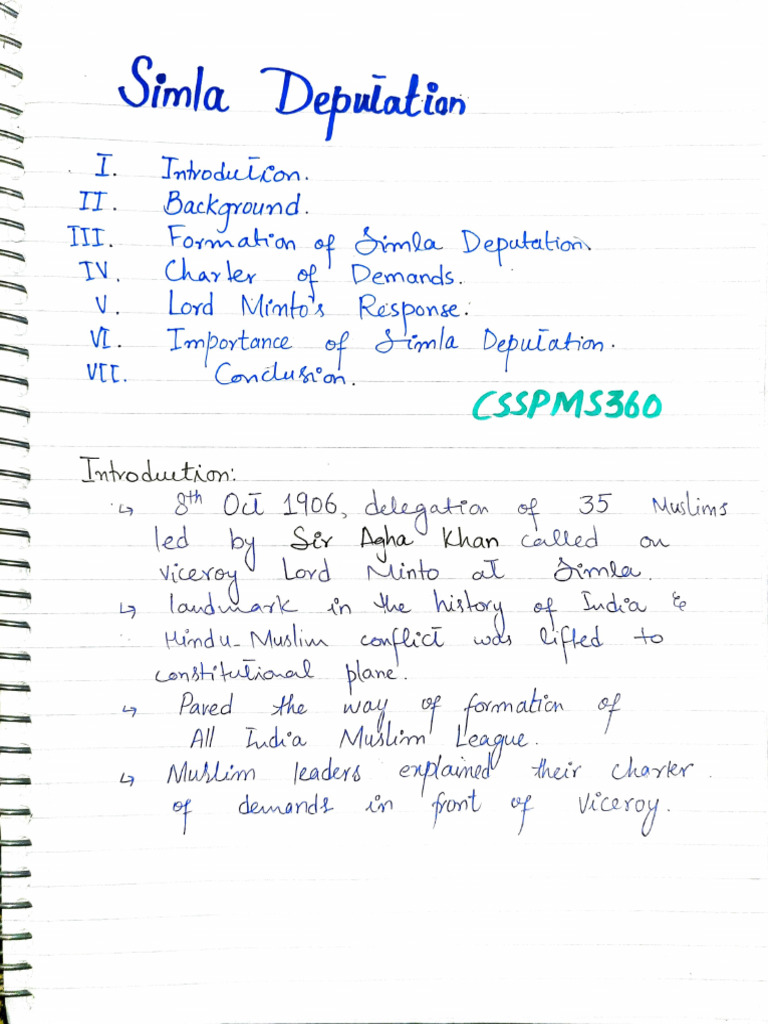 Simla Deputation
I. Introduction.
II. Background.
III. Formation of Simla Deputation.
IV. Charter of Demands.
V. Lord Minto's Response.
VI. Importance of Simla Deputation.
VII. Conclusion.
CSSPMS360
Introduction:
↳ 8th Oct 1906, delegation of 35 Muslims
led by Sir Agha Khan called on
viceroy Lord Minto at Simla.
↳ landmark in the history of India &
Hindu-Muslim conflict was lifted to
constitutional plane.
↳ Paved the way of formation of
All India Muslim League.
↳ Muslim leaders explained their charter
of demands in front of Viceroy.